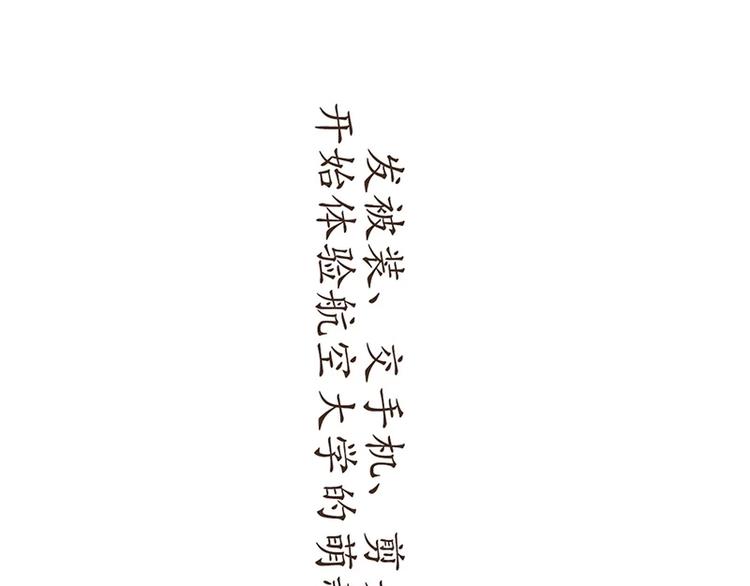 发被装、交手机、剪
开始体验航空大学的萌